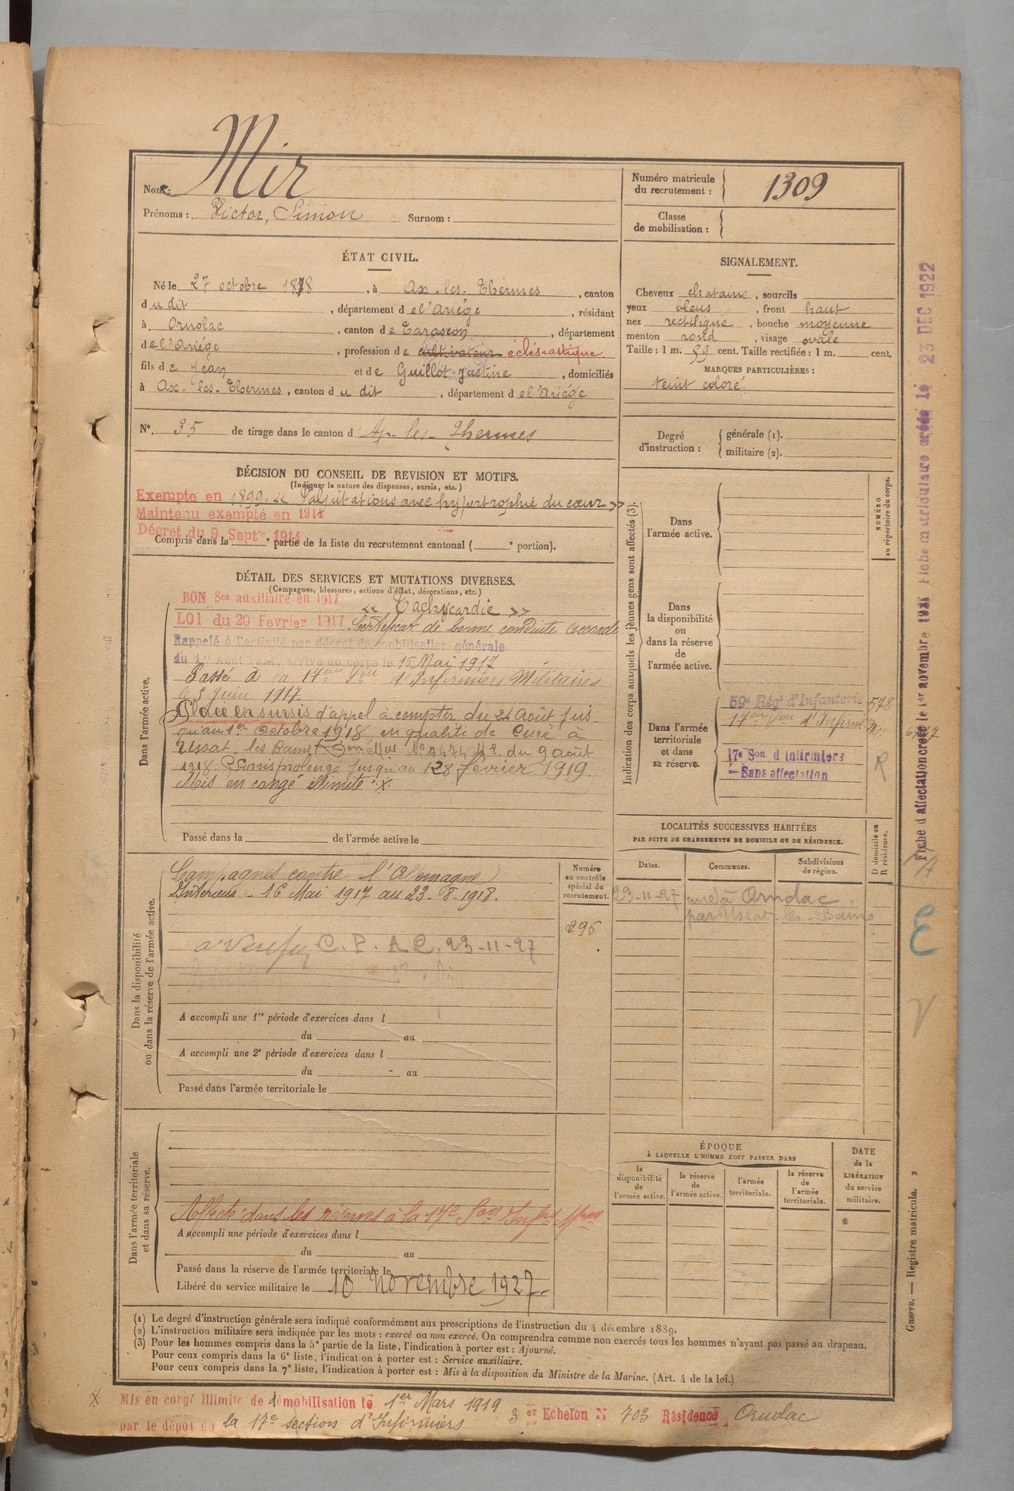 Mir
Nom:
Prénoms : Victor, Simon Surnom :
Numéro matricule du recrutement : 1309
Classe de mobilisation :
ÉTAT CIVIL.
Né le 27 octobre 1878, à Ax-les-Thermes, canton
du dit, département de l'Ariège, résidant
à Ornolac, canton de Tarascon, département
de l'Ariège, profession de cultivateur écclésiastique
fils de Jean et de Guillot Justine, domiciliés
à Ax-les-Thermes, canton du dit, département de l'Ariège
N° 35 de tirage dans le canton d'Ax-les-Thermes
SIGNALEMENT.
Cheveux chatains, sourcils
yeux bleus, front haut
nez rectiligne, bouche moyenne
menton rond, visage ovale
Taille : 1 m. 59 cent. Taille rectifiée : 1 m. cent.
MARQUES PARTICULIÈRES :
teint coloré
Degré d'instruction : générale (1).
militaire (2).
DÉCISION DU CONSEIL DE REVISION ET MOTIFS.
(Indiquer la nature des dispenses, sursis, etc.)
Exempté en 1899. « Palpitations avec hypertrophie du cœur »
Maintenu exempté en 1914
Décret du 9 Septre 1914
Compris dans la e partie de la liste du recrutement cantonal ( e portion).
DÉTAIL DES SERVICES ET MUTATIONS DIVERSES.
(Campagnes, blessures, actions d'éclat, décorations, etc.)
BON Sce auxiliaire en 1917 « Tachycardie »
LOI du 20 Février 1917. Certificat de bonne conduite accordé
Rappelé à l'activité par décret de mobilisation générale
du 1er Août arrivé au corps le 16 Mai 1917
Passé à la 17eme Son d'Infirmiers Militaires
le 3 Juin 1917.
Placé en sursis d'appel à compter du 21 Août jus-
qu'au 1er Octobre 1918 en qualité de Curé à
Ussat-les-Bains du 9 août
1918. Sursis prolongé jusqu'au 28 février 1919
Mis en congé illimité X
Dans l'armée active.
Passé dans la de l'armée active le
Indication des corps auxquels les jeunes gens sont affectés (3).
NUMÉRO au répertoire du corps.
Dans l'armée active.
Dans la disponibilité ou dans la réserve de l'armée active.
Dans l'armée territoriale et dans sa réserve.
59e Régt d'Infanterie 578
17eme Son d'Infirm
17e Son d'Infirmiers
— Sans affectation
R
LOCALITÉS SUCCESSIVES HABITÉES
PAR SUITE DE CHANGEMENTS DE DOMICILE OU DE RÉSIDENCE.
Dates. Communes. Subdivisions de région. D domicile ou R résidence.
23-11-27 curé à Ornolac
par Ussat-les-Bains
Dans la disponibilité ou dans la réserve de l'armée active.
Campagnes contre l'Allemagne
Intérieur - 16 Mai 1917 au 22-8-1918.
Numéro au contrôle spécial du recrutement.
296
C. P. A. C. 23-11-27
A accompli une 1re période d'exercices dans l
du au
A accompli une 2e période d'exercices dans l
du au
Passé dans l'armée territoriale le
Dans l'armée territoriale et dans sa réserve.
Affecté dans les réserves à la 17e Son
A accompli une période d'exercices dans l
du au
Passé dans la réserve de l'armée territoriale le
Libéré du service militaire le 10 novembre 1927
ÉPOQUE
À LAQUELLE L'HOMME DOIT PASSER DANS
la disponibilité de l'armée active. la réserve de l'armée active. l'armée territoriale. la réserve de l'armée territoriale.
DATE de la LIBÉRATION du service militaire.
(1) Le degré d'instruction générale sera indiqué conformément aux prescriptions de l'instruction du 4 décembre 1889.
(2) L'instruction militaire sera indiquée par les mots : exercé ou non exercé. On comprendra comme non exercés tous les hommes n'ayant pas passé au drapeau.
(3) Pour les hommes compris dans la 5e partie de la liste, l'indication à porter est : Ajourné.
Pour ceux compris dans la 6e liste, l'indication à porter est : Service auxiliaire.
Pour ceux compris dans la 7e liste, l'indication à porter est : Mis à la disposition du Ministre de la Marine. (Art. 4 de la loi.)
X Mis en congé illimité de démobilisation le 1er Mars 1919 3 er Echelon N° 703 Résidence Ornolac
par le dépôt du la 17e section d'Infirmiers
Guerre. — Registre matricule. 2